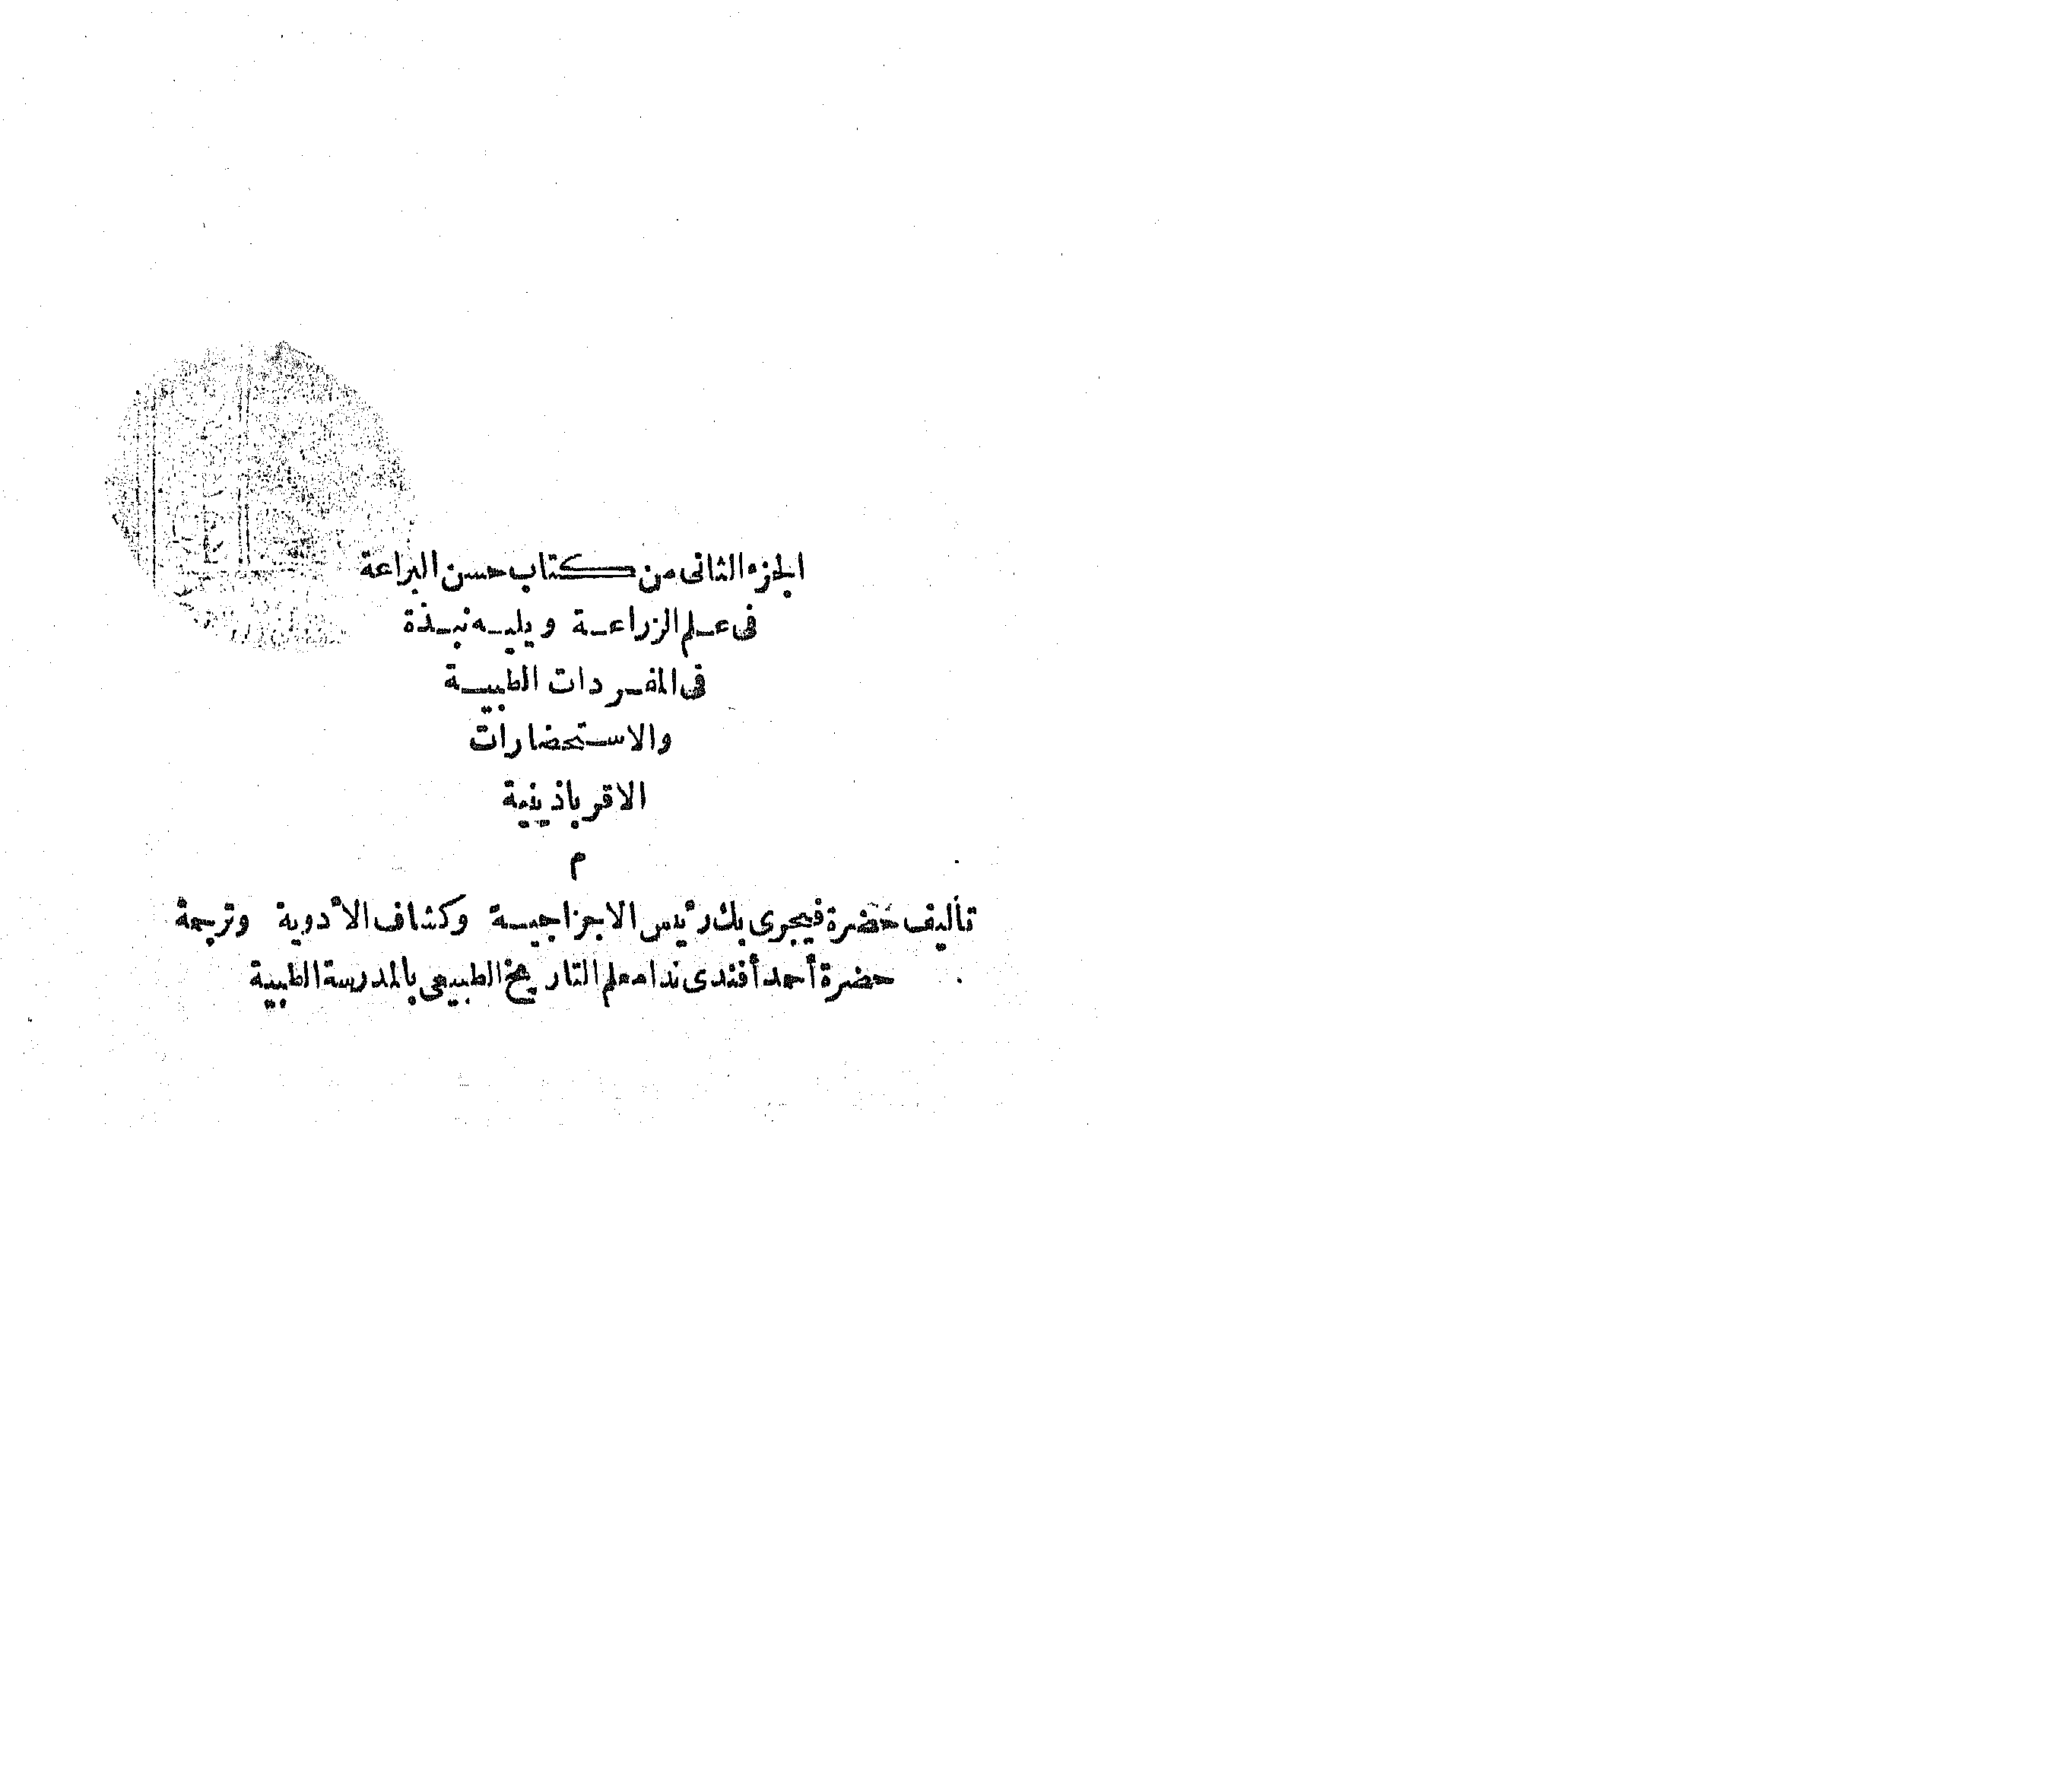 الجزء الثانى من كتاب حسن البراعة
فى علم الزراعة ويليه نبذة
فى المفردات الطبية
والاستحضارات
الاقرباذينية
م
تأليف حضرة فيجرى بك رئيس الاجزاجية وكشاف الأدوية وترجمة
حضرة أحمد أفندى ندا معلم التاريخ الطبيعى بالمدرسة الطبية